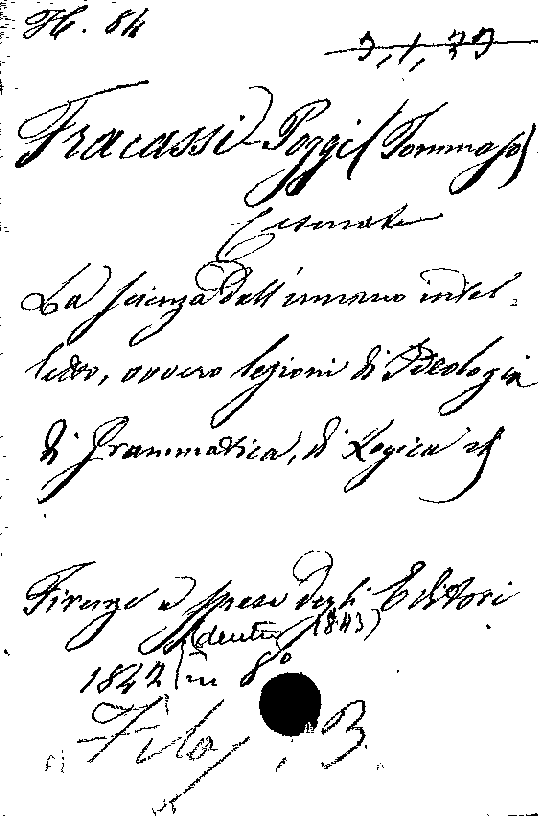 H. 84
3, 1, 33
Fracassi-Poggi (Tommaso)
Cesenate
La scienza dell'umano intel-
letto, ovvero lezioni di Ideologia
di Grammatica, di Logica
Firenze a spese degli Editori
(dentro 1843)
1842 in 8º
Filos. B.